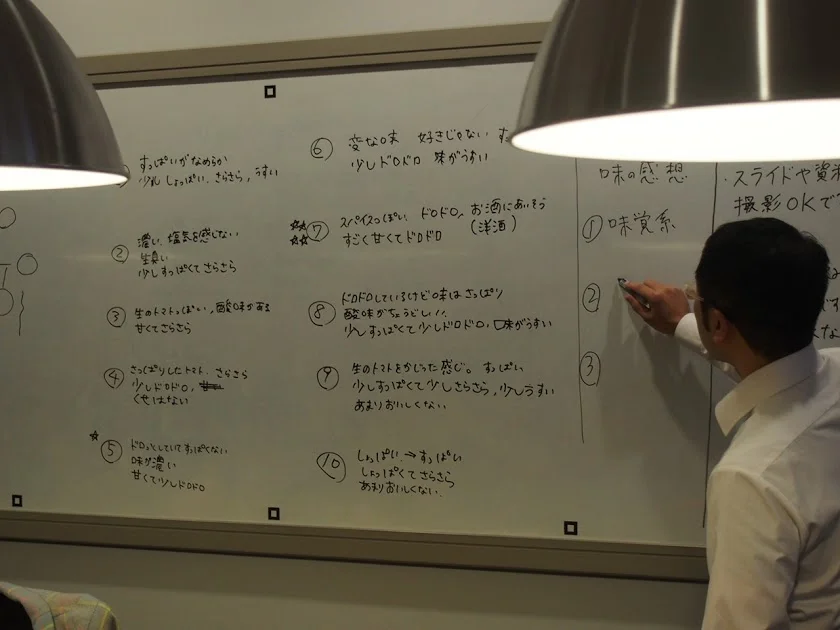 すっぱいがなめらか
少し しょっぱい、さらさら、うすい
② 濃い、塩気を感じない
生臭い
少しすっぱくてさらさら
③ 生のトマトっぽい、酸味がある
甘くてさらさら
④ さっぱりしたトマト、さらさら
少しドロドロ、
くせはない
☆
⑤ ドロっとしていてすっぱくない
味が濃い
甘くて少しドロドロ
⑥ 変な味 好きじゃない す
少しドロドロ 味がうすい
☆☆
☆☆
⑦ スパイスっぽい、ドロドロ、お酒にあいそう
(洋酒)
すごく甘くてドロドロ
⑧ ドロドロしているけど味はさっぱり
酸味がちょうどいい
少しすっぱくて少しドロドロ、味がうすい
⑨ 生のトマトをかじった感じ。すっぱい
少しすっぱくて少しさらさら、少しうすい
あまりおいしくない
⑩ しょっぱい→すっぱい
しょっぱくてさらさら
あまりおいしくない。
味の感想
① 味覚系
②
③
・スライドや資
撮影OKで